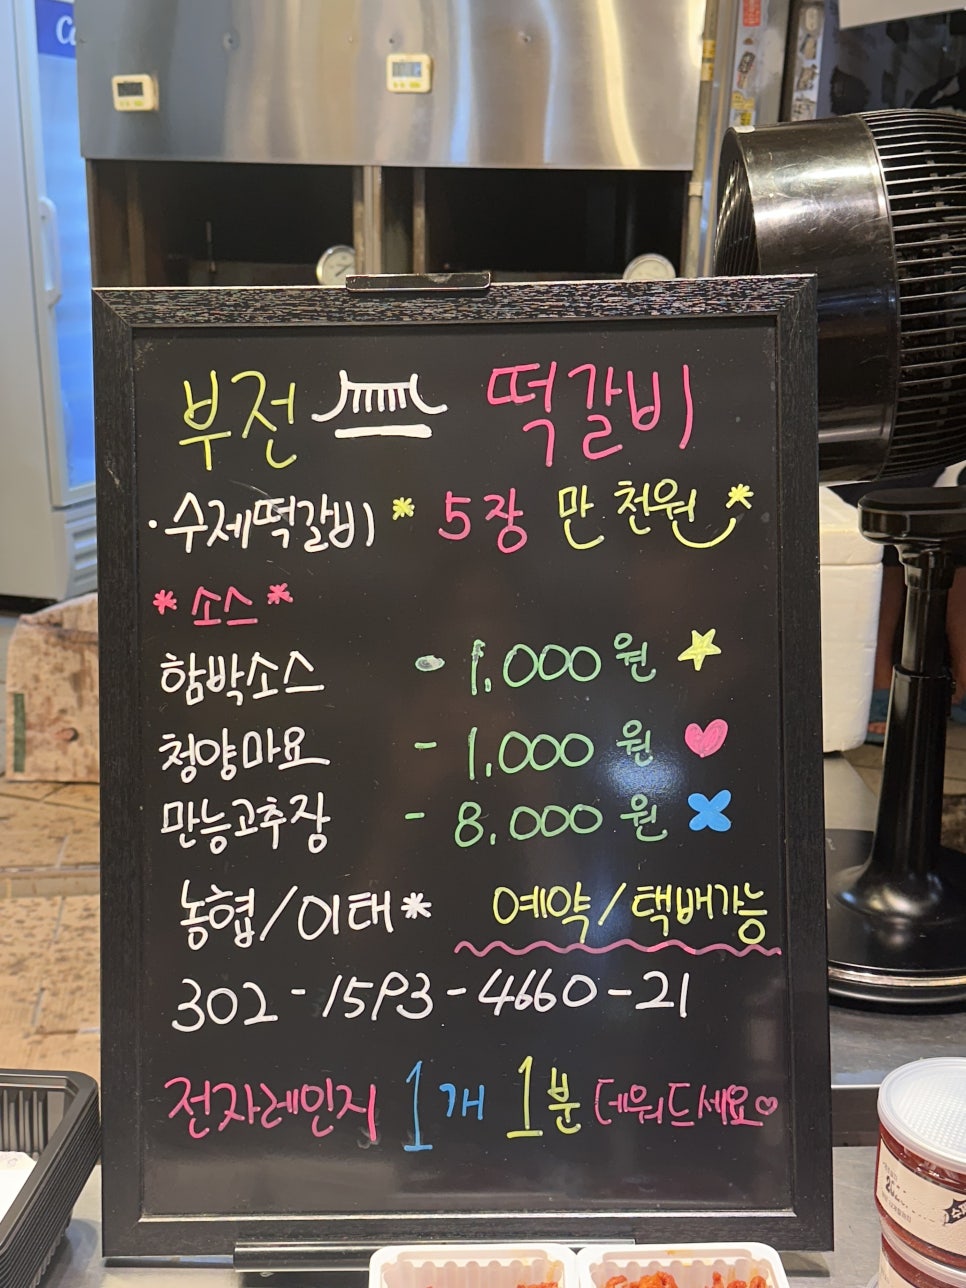 부전 떡갈비
· 수제떡갈비 * 5장 만 천원 *
* 소스 *
함박소스 - 1,000원
청양마요 - 1,000원
만능고추장 - 8,000원
농협/이태* 예약/택배가능
302-1593-4660-21
전자레인지 1개 1분 데워드세요♡